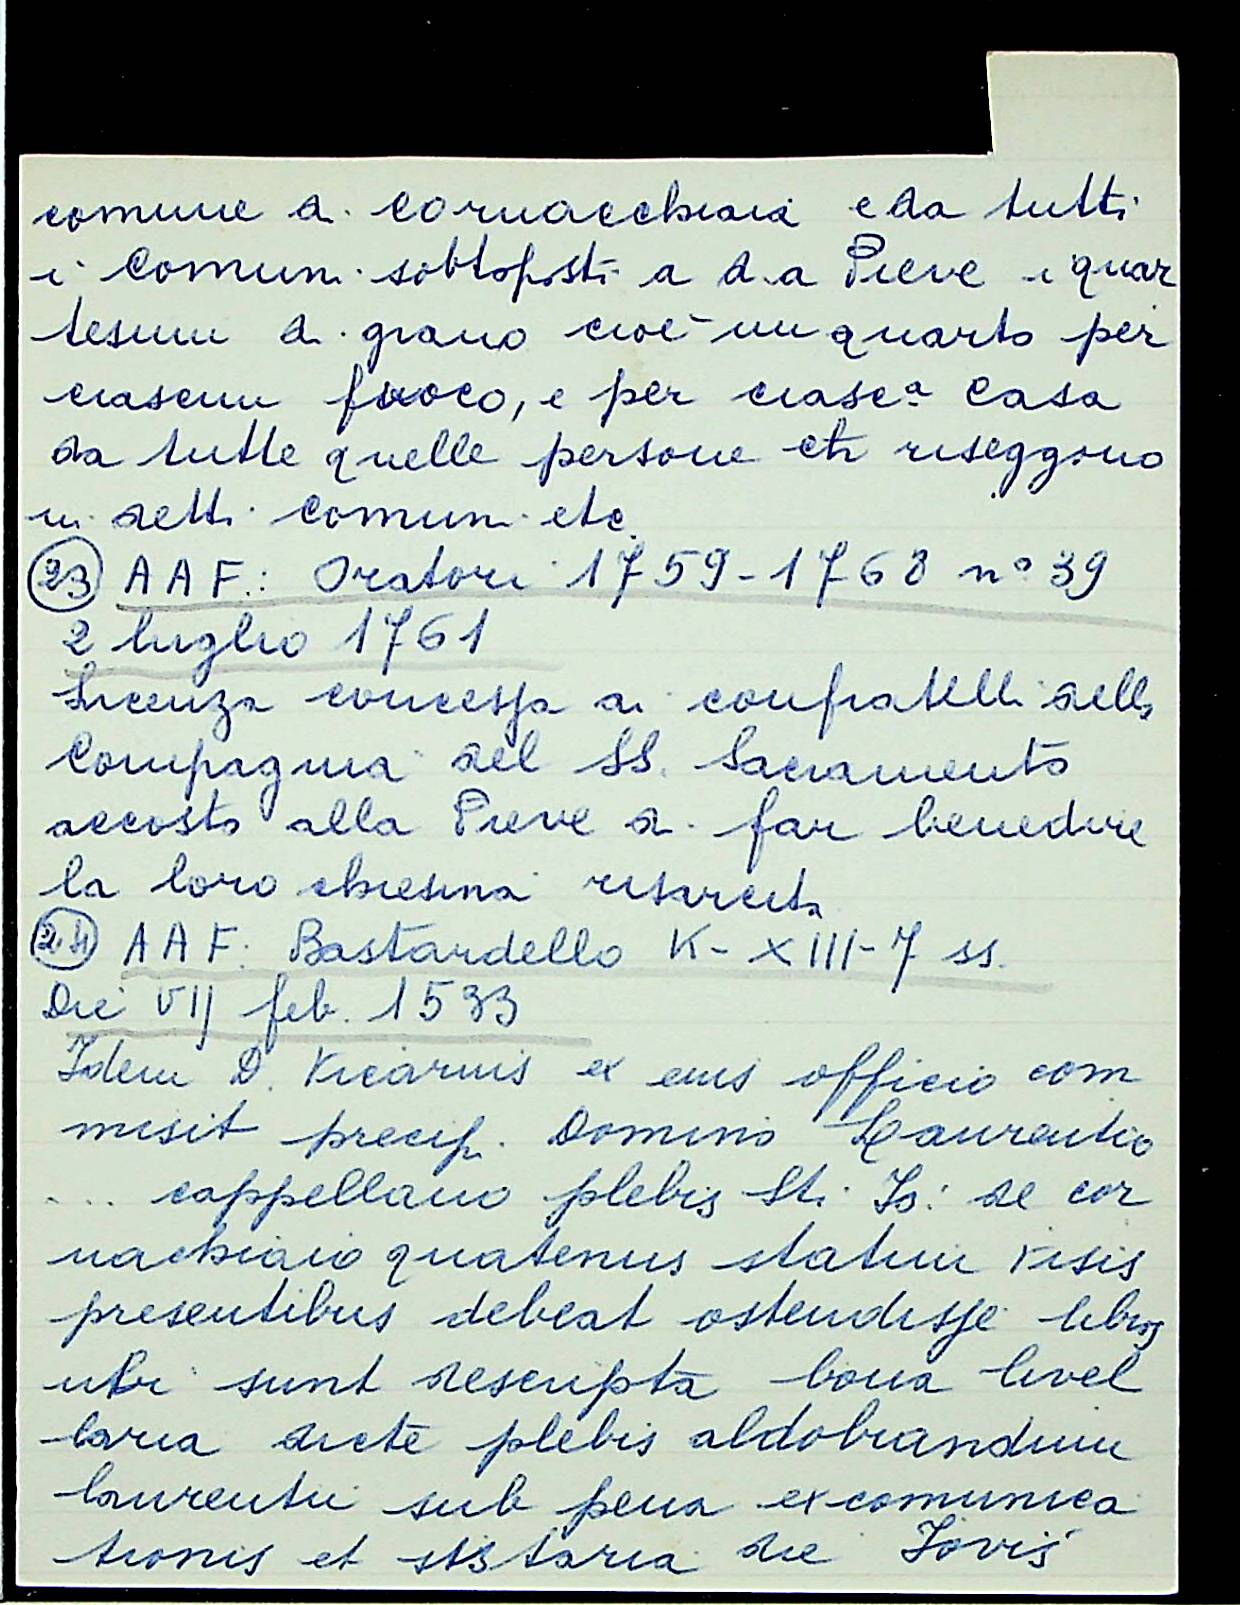 comune di Cornacchiaia e da tutti
i Comuni sottoposti a d.a Pieve i quar
tesimi di grano cioè un quarto per
ciascun fuoco, e per ciasc.a Casa
da tutte quelle persone ch riseggono
in detti Comuni etc.
(23) AAF.: Oratori 1759-1768 n° 39
2 luglio 1761
Licenza concessa ai confratelli della
Compagnia del SS. Sacramento
accosto alla Pieve di far benedire
la loro chiesina risarcita
(24) AAF: Bastardello K-XIII-7 ss.
Die VII feb. 1533
Idem D. Vicarius ex eius officio com
misit precip. Domino Laurentio
... cappellano plebis Sti Jo: de cor
nachiaio quatenus statim visis
presentibus debeat ostendisse libros
ubi sunt descripta bona livel
laria dicte plebis aldobrandum
laurentii sub pena excomunica
tionis et die Jovis